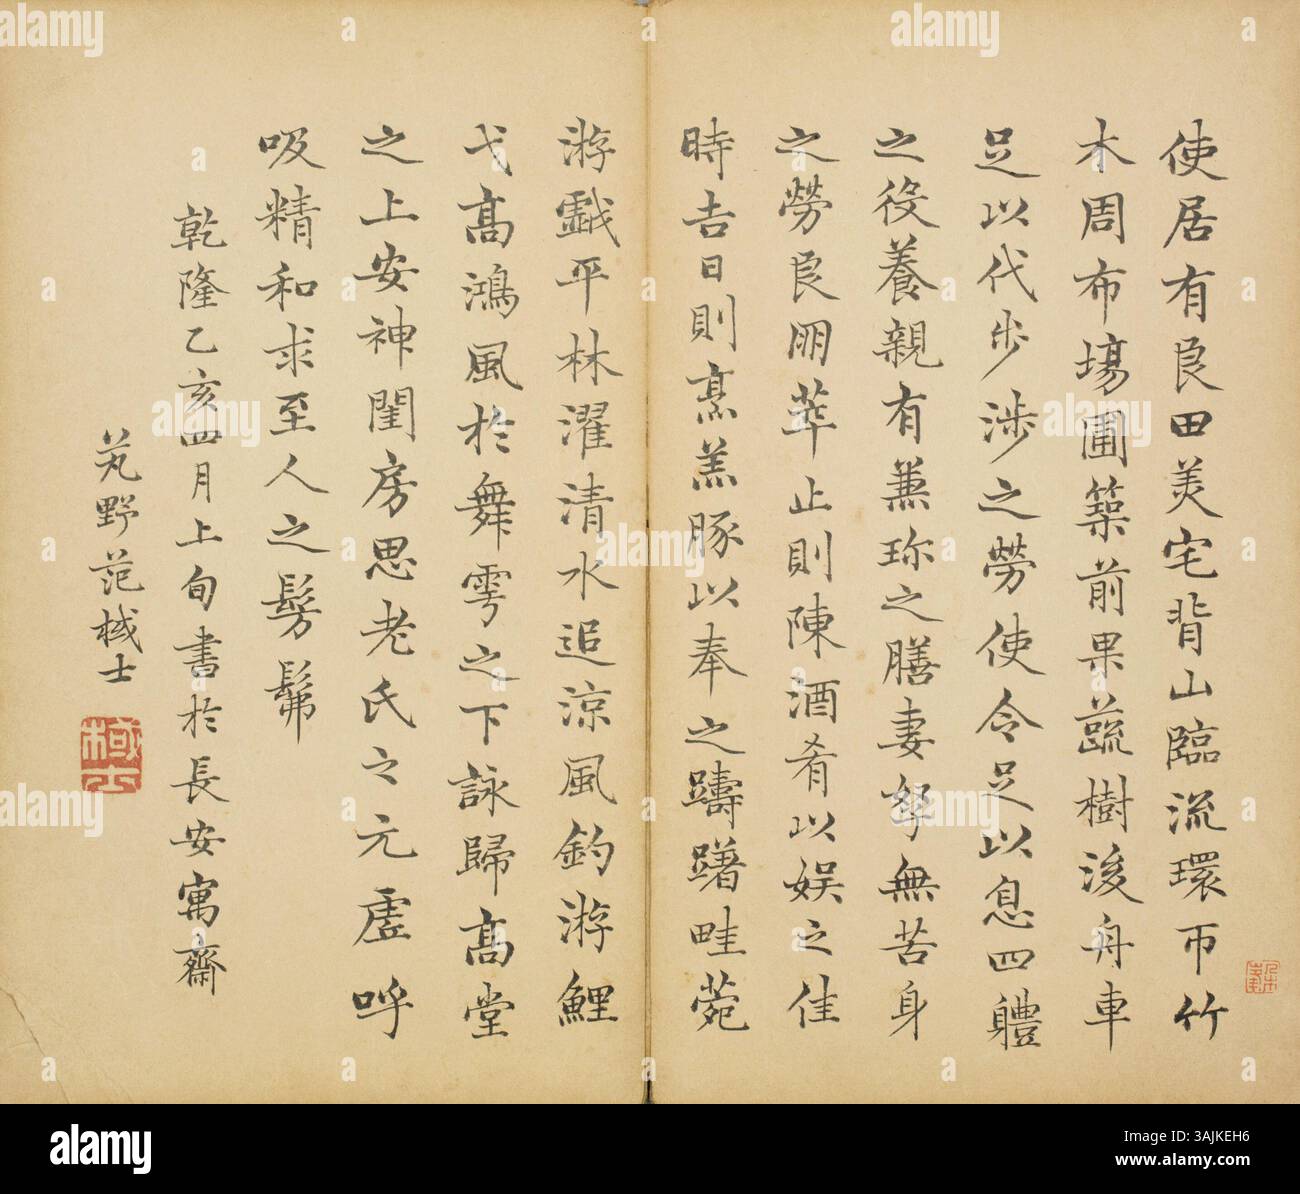 使居有良田美宅背山臨流環帀竹
木周布塲圃築前果蔬樹後舟車
足以代步涉之勞使令足以息四軆
之役養親有兼珎之膳妻孥無苦身
之勞良朋萃止則陳酒肴以娛之佳
時吉日則烹羔豚以奉之躊躇畦菀
游戲平林濯清水追涼風釣游鯉
弋高鴻風於舞雩之下詠歸高堂
之上安神閨房思老氏之元虛呼
吸精和求至人之髣髴
乾隆乙亥四月上旬書於長安寓齋
芄野范棫士
棫士
alamy
Image ID: 3AJKEH6
www.alamy.com